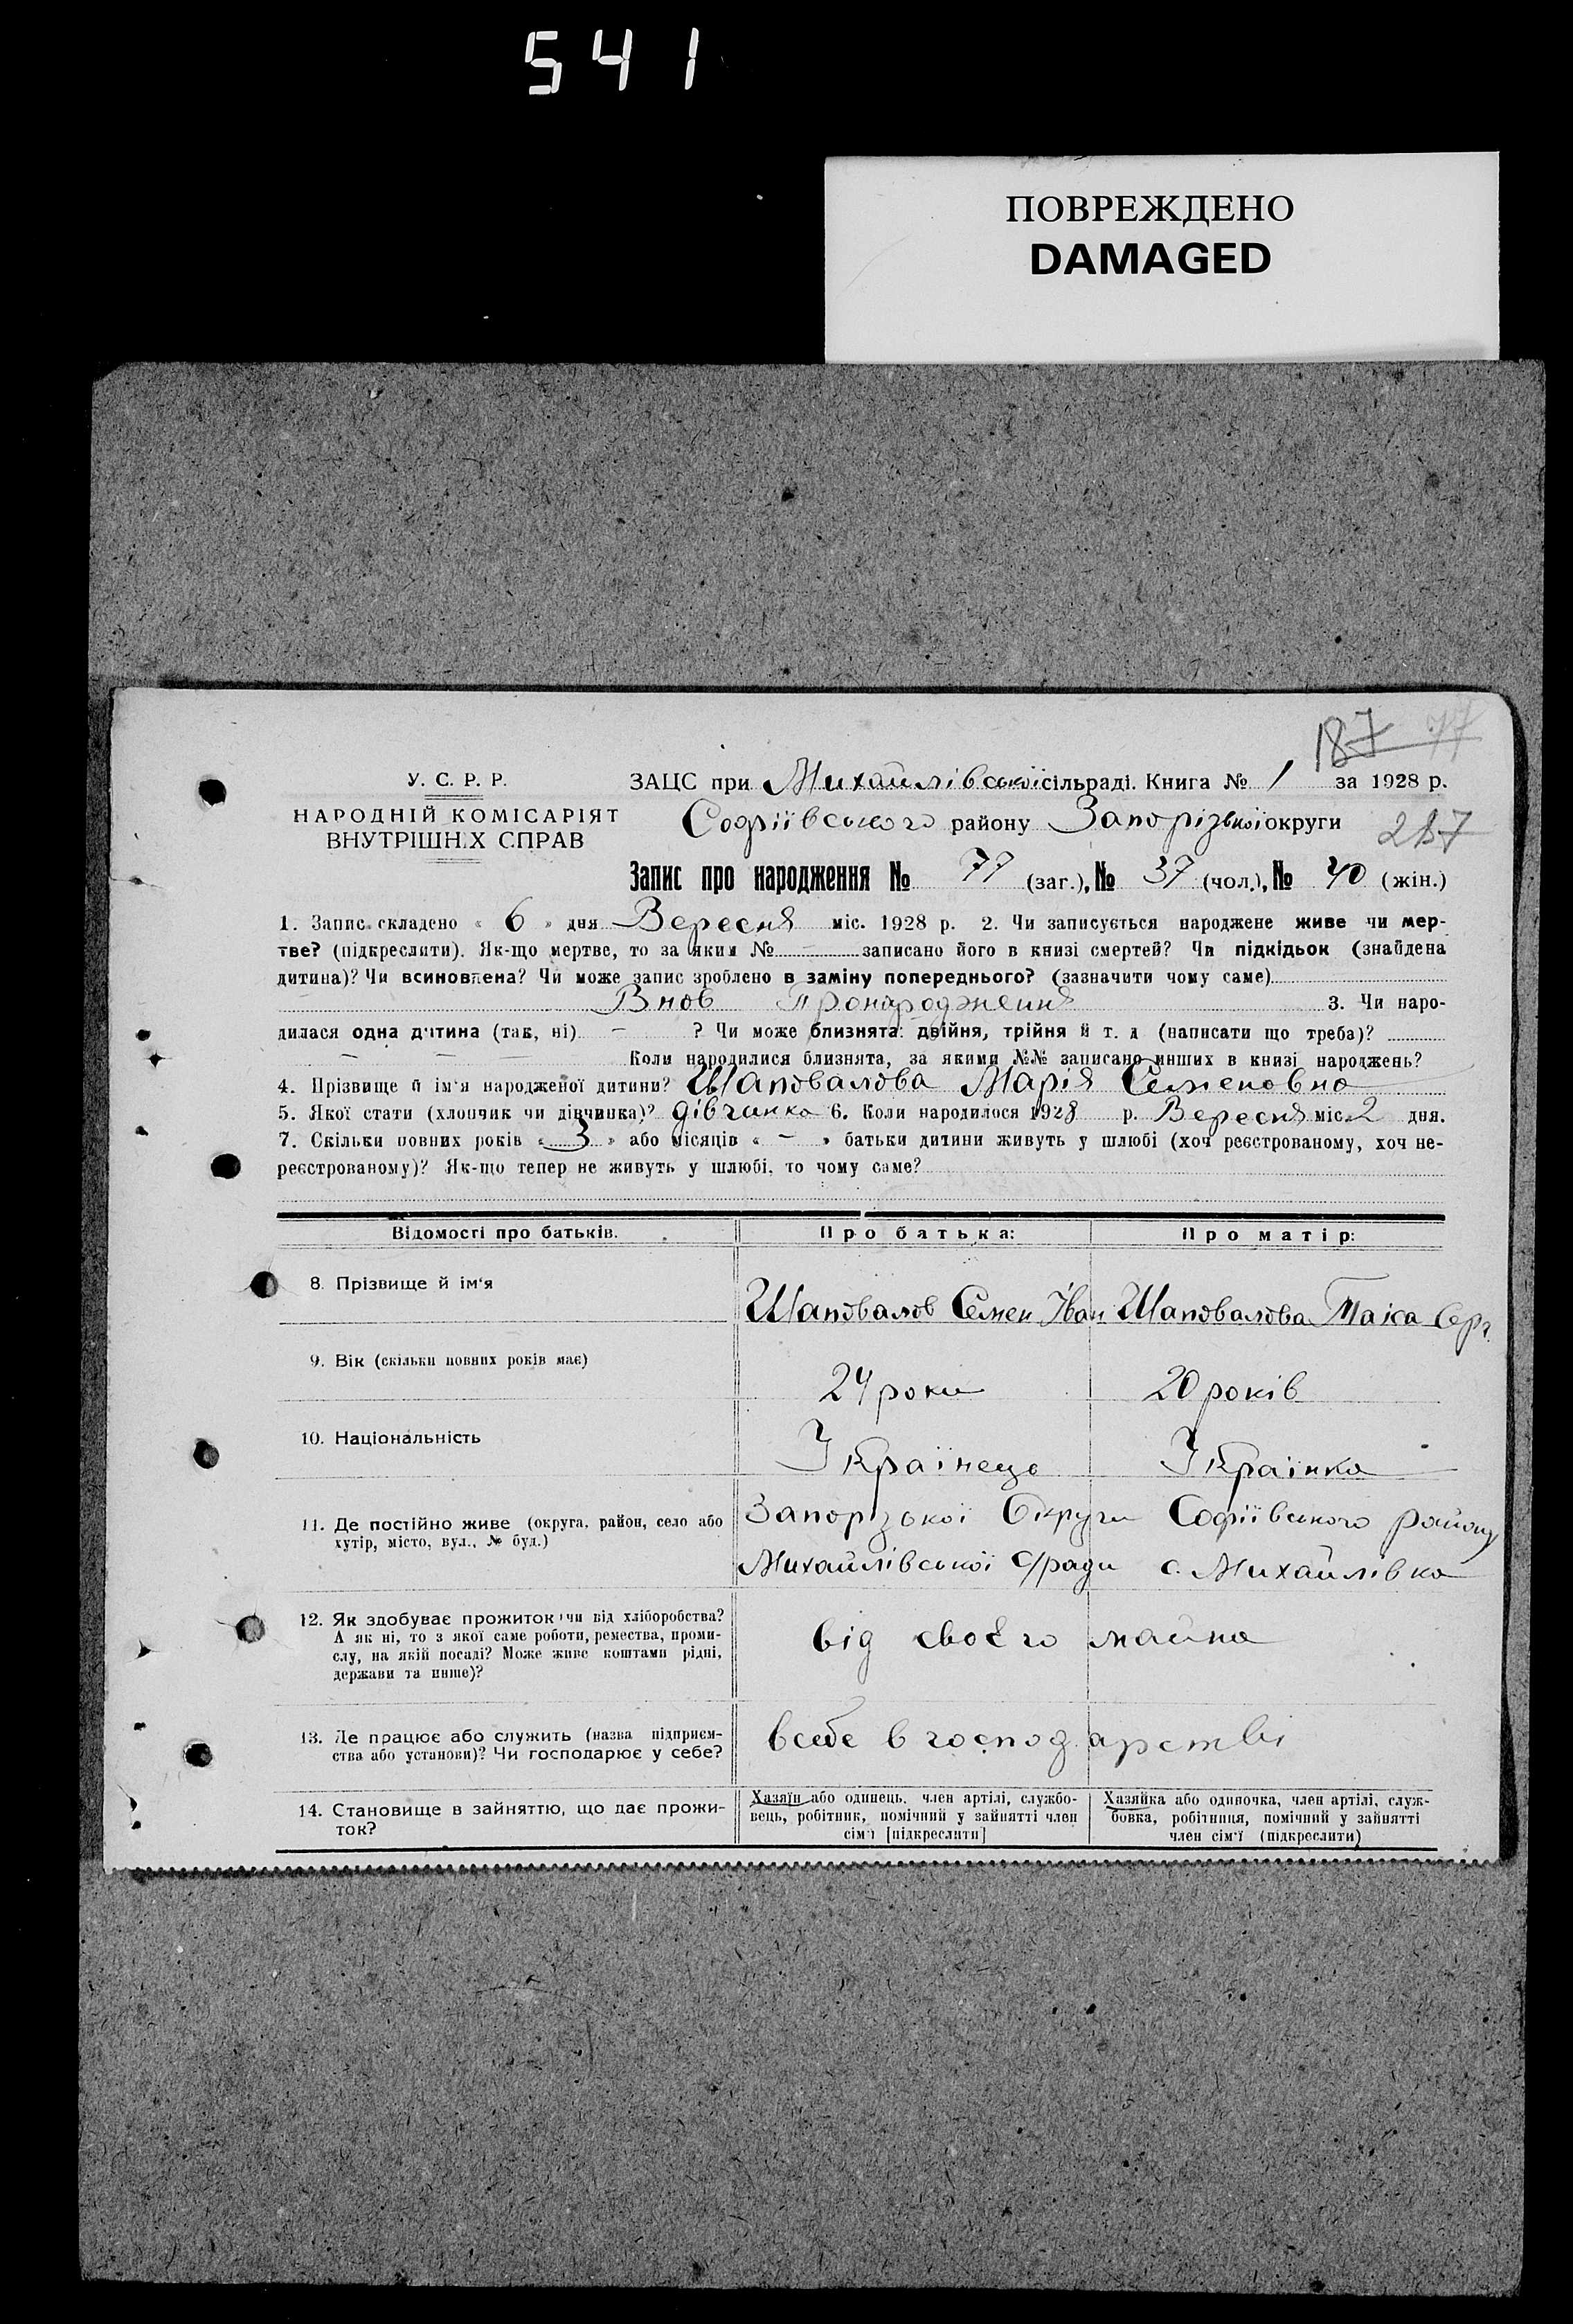 541
ПОВРЕЖДЕНО
DAMAGED
187 77
У. С. Р. Р.
НАРОДНІЙ КОМІСАРІЯТ
ВНУТРІШНІХ СПРАВ
ЗАЦС при Михайлівської сільраді. Книга № 1 за 1928 р.
Софіївського району Запорізької округи
287
Запис про народження № 77 (заг.), № 37 (чол.), № 40 (жін.)
1. Запис складено « 6 » дня Вересня міс. 1928 р. 2. Чи записується народжене живе чи мер-
тве? (підкреслити). Як-що мертве, то за яким № — записано його в книзі смертей? Чи підкідьок (знайдена
дитина)? Чи всиновлена? Чи може запис зроблено в заміну попереднього? (зазначити чому саме)
Внов пронародження
3. Чи наро-
дилася одна дитина (так, ні) — ? Чи може близнята: двійня, трійня й т. д (написати що треба)?
— — — Коли народилися близнята, за якими №№ записано инших в книзі народжень?
4. Прізвище й ім'я народженої дитини? Шаповалова Марія Семеновна
5. Якої стати (хлопчик чи дівчинка)? дівчинка 6. Коли народилося 1928 р. Вересня міс. 2 дня.
7. Скільки повних років « 3 » або місяців « — » батьки дитини живуть у шлюбі (хоч реєстрованому, хоч не-
реєстрованому)? Як-що тепер не живуть у шлюбі, то чому саме?
Відомості про батьків. Про батька: Про матір:
8. Прізвище й ім'я
Шаповалов Семен Іван Шаповалова Таіса Серг
9. Вік (скільки повних років має)
24 роки 20 років
10. Національність
Українець Українка
11. Де постійно живе (округа, район, село або
хутір, місто, вул., № буд.)
Запорізької Округи Софіївського району
Михайлівської с/ради с. Михайлівка
12. Як здобуває прожиток: чи від хліборобства?
А як ні, то з якої саме роботи, ремества, проми-
слу, на якій посаді? Може живе коштами рідні,
держави та инше)?
від своєго майна
13. Де працює або служить (назва підприєм-
ства або установи)? Чи господарює у себе?
всебе в господарстві
14. Становище в зайняттю, що дає прожи-
ток?
Хазяїн або одинець, член артілі, службо-
вець, робітник, помічний у зайнятті член
сім'ї [підкреслити]
Хазяйка або одиночка, член артілі, служ-
бовка, робітниця, помічний у зайнятті
член сім'ї (підкреслити)